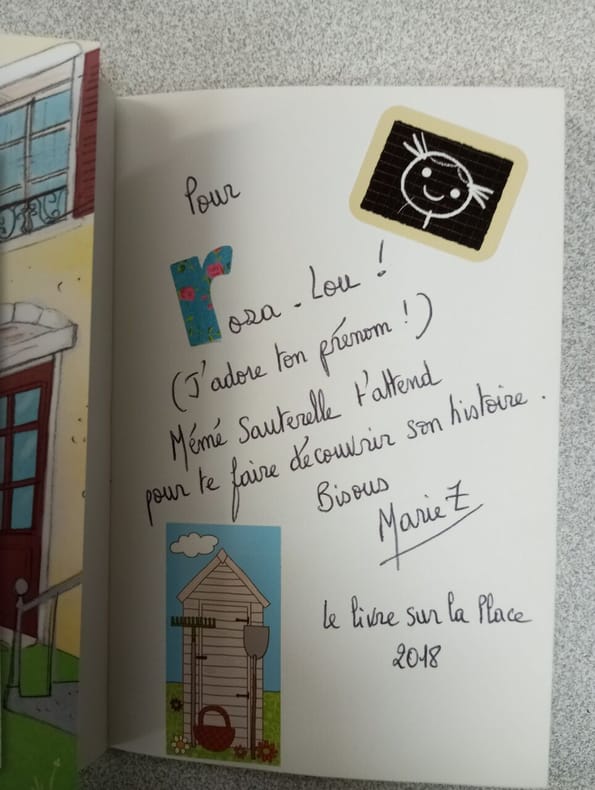 Pour
roza-Lou !
(J'adore ton prénom !)
Mémé Sauterelle t'attend
pour te faire découvrir son histoire.
Bisous
Marie Z
Le livre sur la Place
2018